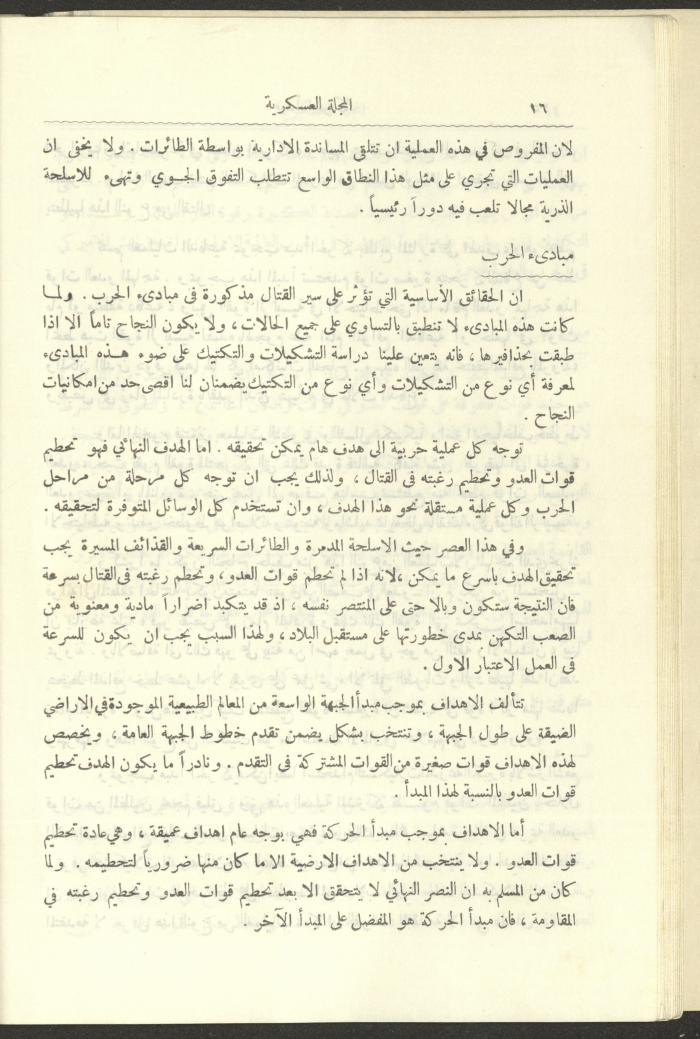 ١٦
المجلة العسكرية
لان المفروص في هذه العملية ان تتلقى المساندة الادارية بواسطة الطائرات . ولا يخفى ان
العمليات التي تجري على مثل هذا النطاق الواسع تتطلب التفوق الجوي وتهيء للاسلحة
الذرية مجالا تلعب فيه دوراً رئيسياً .
مبادىء الحرب
ان الحقائق الأساسية التي تؤثر على سير القتال مذكورة في مبادىء الحرب . ولما
كانت هذه المبادىء لا تنطبق بالتساوي على جميع الحالات ، ولا يكون النجاح تاماً الا اذا
طبقت بحذافيرها ، فانه يتعين علينا دراسة التشكيلات والتكتيك على ضوء هذه المبادىء
لمعرفة أي نوع من التشكيلات وأي نوع من التكتيك يضمنان لنا اقصى حد من امكانيات
النجاح .
توجه كل عملية حربية الى هدف هام يمكن تحقيقه . اما الهدف النهائي فهو تحطيم
قوات العدو وتحطيم رغبته في القتال ، ولذلك يجب ان توجه كل مرحلة من مراحل
الحرب وكل عملية مستقلة نحو هذا الهدف ، وان تستخدم كل الوسائل المتوفرة لتحقيقه .
وفي هذا العصر حيث الاسلحة المدمرة والطائرات السريعة والقذائف المسيرة يجب
تحقيق الهدف باسرع ما يمكن ، لانه اذا لم تحطم قوات العدو، وتحطم رغبته فى القتال بسرعة
فان النتيجة ستكون وبالا حتى على المنتصر نفسه ، اذ قد يتكبد اضراراً مادية ومعنوية من
الصعب التكهن بمدى خطورتها على مستقبل البلاد ، ولهذا السبب يجب ان يكون للسرعة
فى العمل الاعتبار الاول .
تتألف الاهداف بموجب مبدأ الجبهة الواسعة من المعالم الطبيعية الموجودة في الاراضي
الضيقة على طول الجبهة ، وتنتخب بشكل يضمن تقدم خطوط الجبهة العامة ، ويخصص
لهذه الاهداف قوات صغيرة من القوات المشتركة في التقدم . ونادراً ما يكون الهدف تحطيم
قوات العدو بالنسبة لهذا المبدأ .
أما الاهداف بموجب مبدأ الحركة فهي بوجه عام اهداف عميقة ، وهي عادة تحطيم
قوات العدو . ولا ينتخب من الاهداف الارضية الا ما كان منها ضرورياً لتحطيمه . ولما
كان من المسلم به ان النصر النهائي لا يتحقق الا بعد تحطيم قوات العدو وتحطيم رغبته في
المقاومة ، فان مبدأ الحركة هو المفضل على المبدأ الآخر .